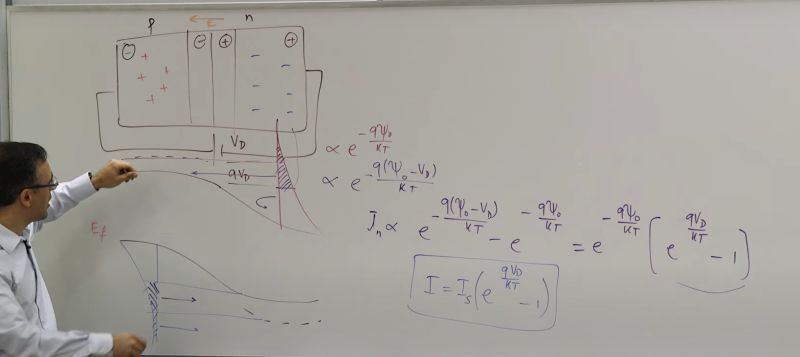 p n
← E
⊖ ⊖ ⊕ ⊕
+ + + + −
V_D
qV_D
∝ e^{-qψ₀/KT}
∝ e^{-q(ψ₀-V_D)/KT}
J_n ∝ e^{-q(ψ₀-V_D)/KT} - e^{-qψ₀/KT} = e^{-qψ₀/KT} [e^{qV_D/KT} - 1]
E_f
I = I_s (e^{qV_D/KT} - 1)